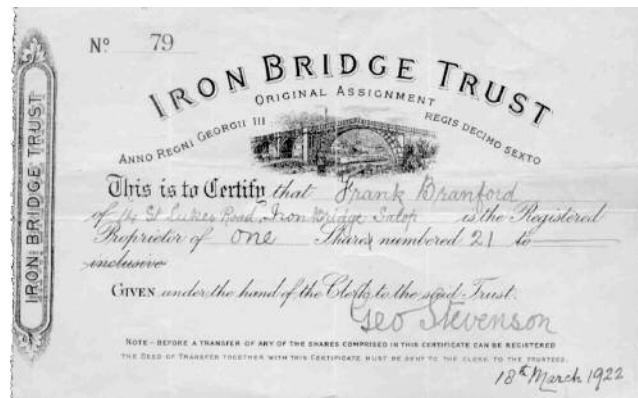 Nº 79
IRON BRIDGE TRUST
ORIGINAL ASSIGNMENT
ANNO REGNI GEORGII III REGIS DECIMO SEXTO
This is to Certify that Frank Branford
of 14 St Lukes Road, Iron Bridge Salop is the Registered
Proprietor of one Share numbered 21 to
inclusive
GIVEN under the hand of the Clerk to the said Trust.
Geo Stevenson
NOTE - BEFORE A TRANSFER OF ANY OF THE SHARES COMPRISED IN THIS CERTIFICATE CAN BE REGISTERED
THE DEED OF TRANSFER TOGETHER WITH THIS CERTIFICATE MUST BE SENT TO THE CLERK TO THE TRUSTEES.
18th March 1922
IRON BRIDGE TRUST